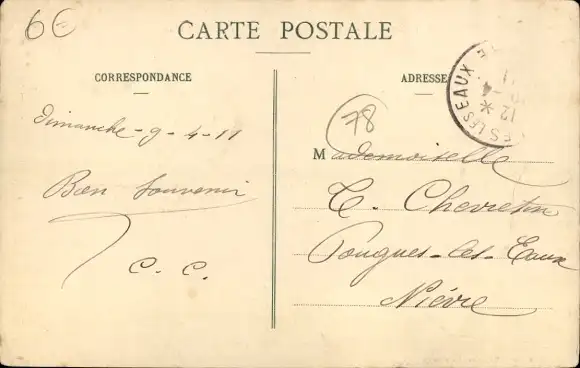 6€
CARTE POSTALE
CORRESPONDANCE
ADRESSE
ES LES EAUX
12 * -4
11
78
Dimanche - 9 - 4 - 11
Bon Souvenir
C. C.
Mademoiselle
C. Chevreton
Pougues-les-Eaux
Nièvre